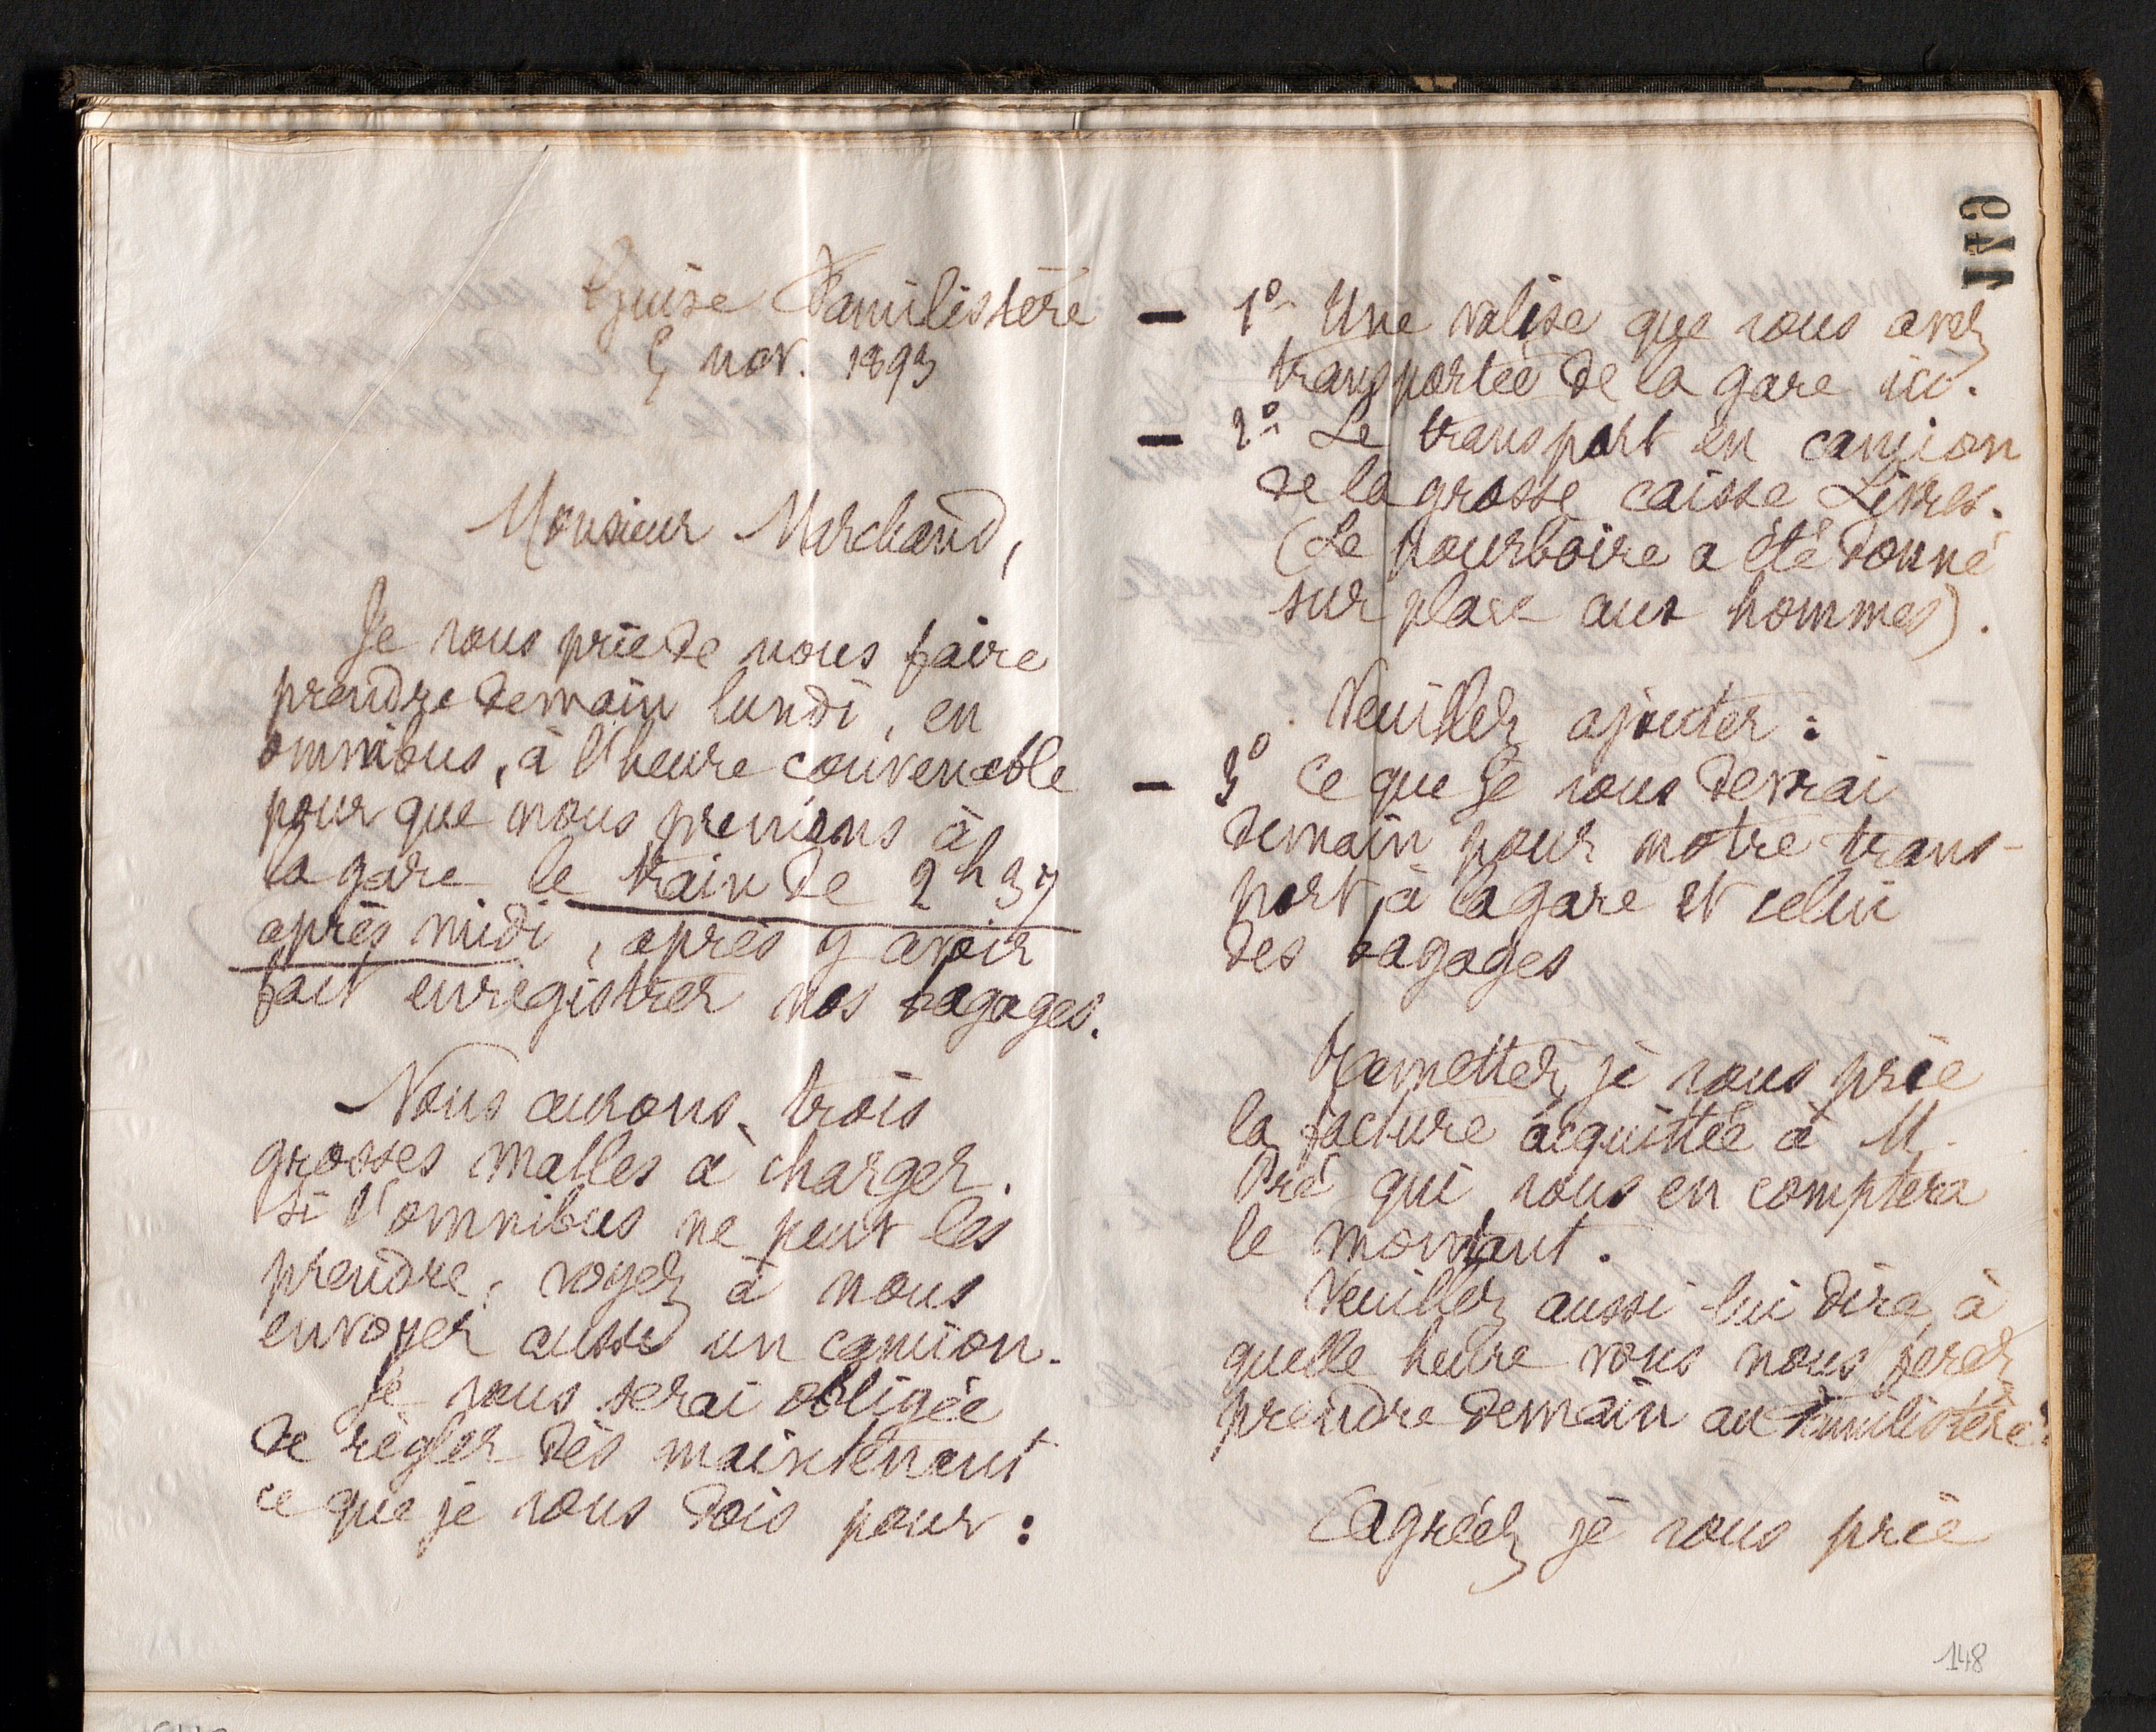 Guise Familistère
5 nov. 1893
Monsieur Marchand,
Je vous prie de nous faire
prendre demain lundi, en
omnibus, à l'heure convenable
pour que nous prenions à
la gare le train de 2h37
après midi, après y avoir
fait enregistrer nos bagages.
Nous aurons trois
grosses malles à charger.
Si l'omnibus ne peut les
prendre, voyez à nous
envoyer aussi un camion.
Je vous serai obligée
de régler dès maintenant
ce que je vous dois pour :
— 1° Une valise que vous avez
transportée de la gare ici.
— 2° Le transport en camion
de la grosse caisse Livres.
(Le pourboire a été donné
sur place aux hommes).
Veuillez ajouter :
— 3° Ce que je vous devrai
demain pour notre trans-
port à la gare et celui
des bagages
Remettez, je vous prie
la facture acquittée à M.
Pré qui vous en comptera
le montant.
Veuillez aussi lui dire à
quelle heure vous nous ferez
prendre demain au Familistère.
Agréez je vous prie
149
148